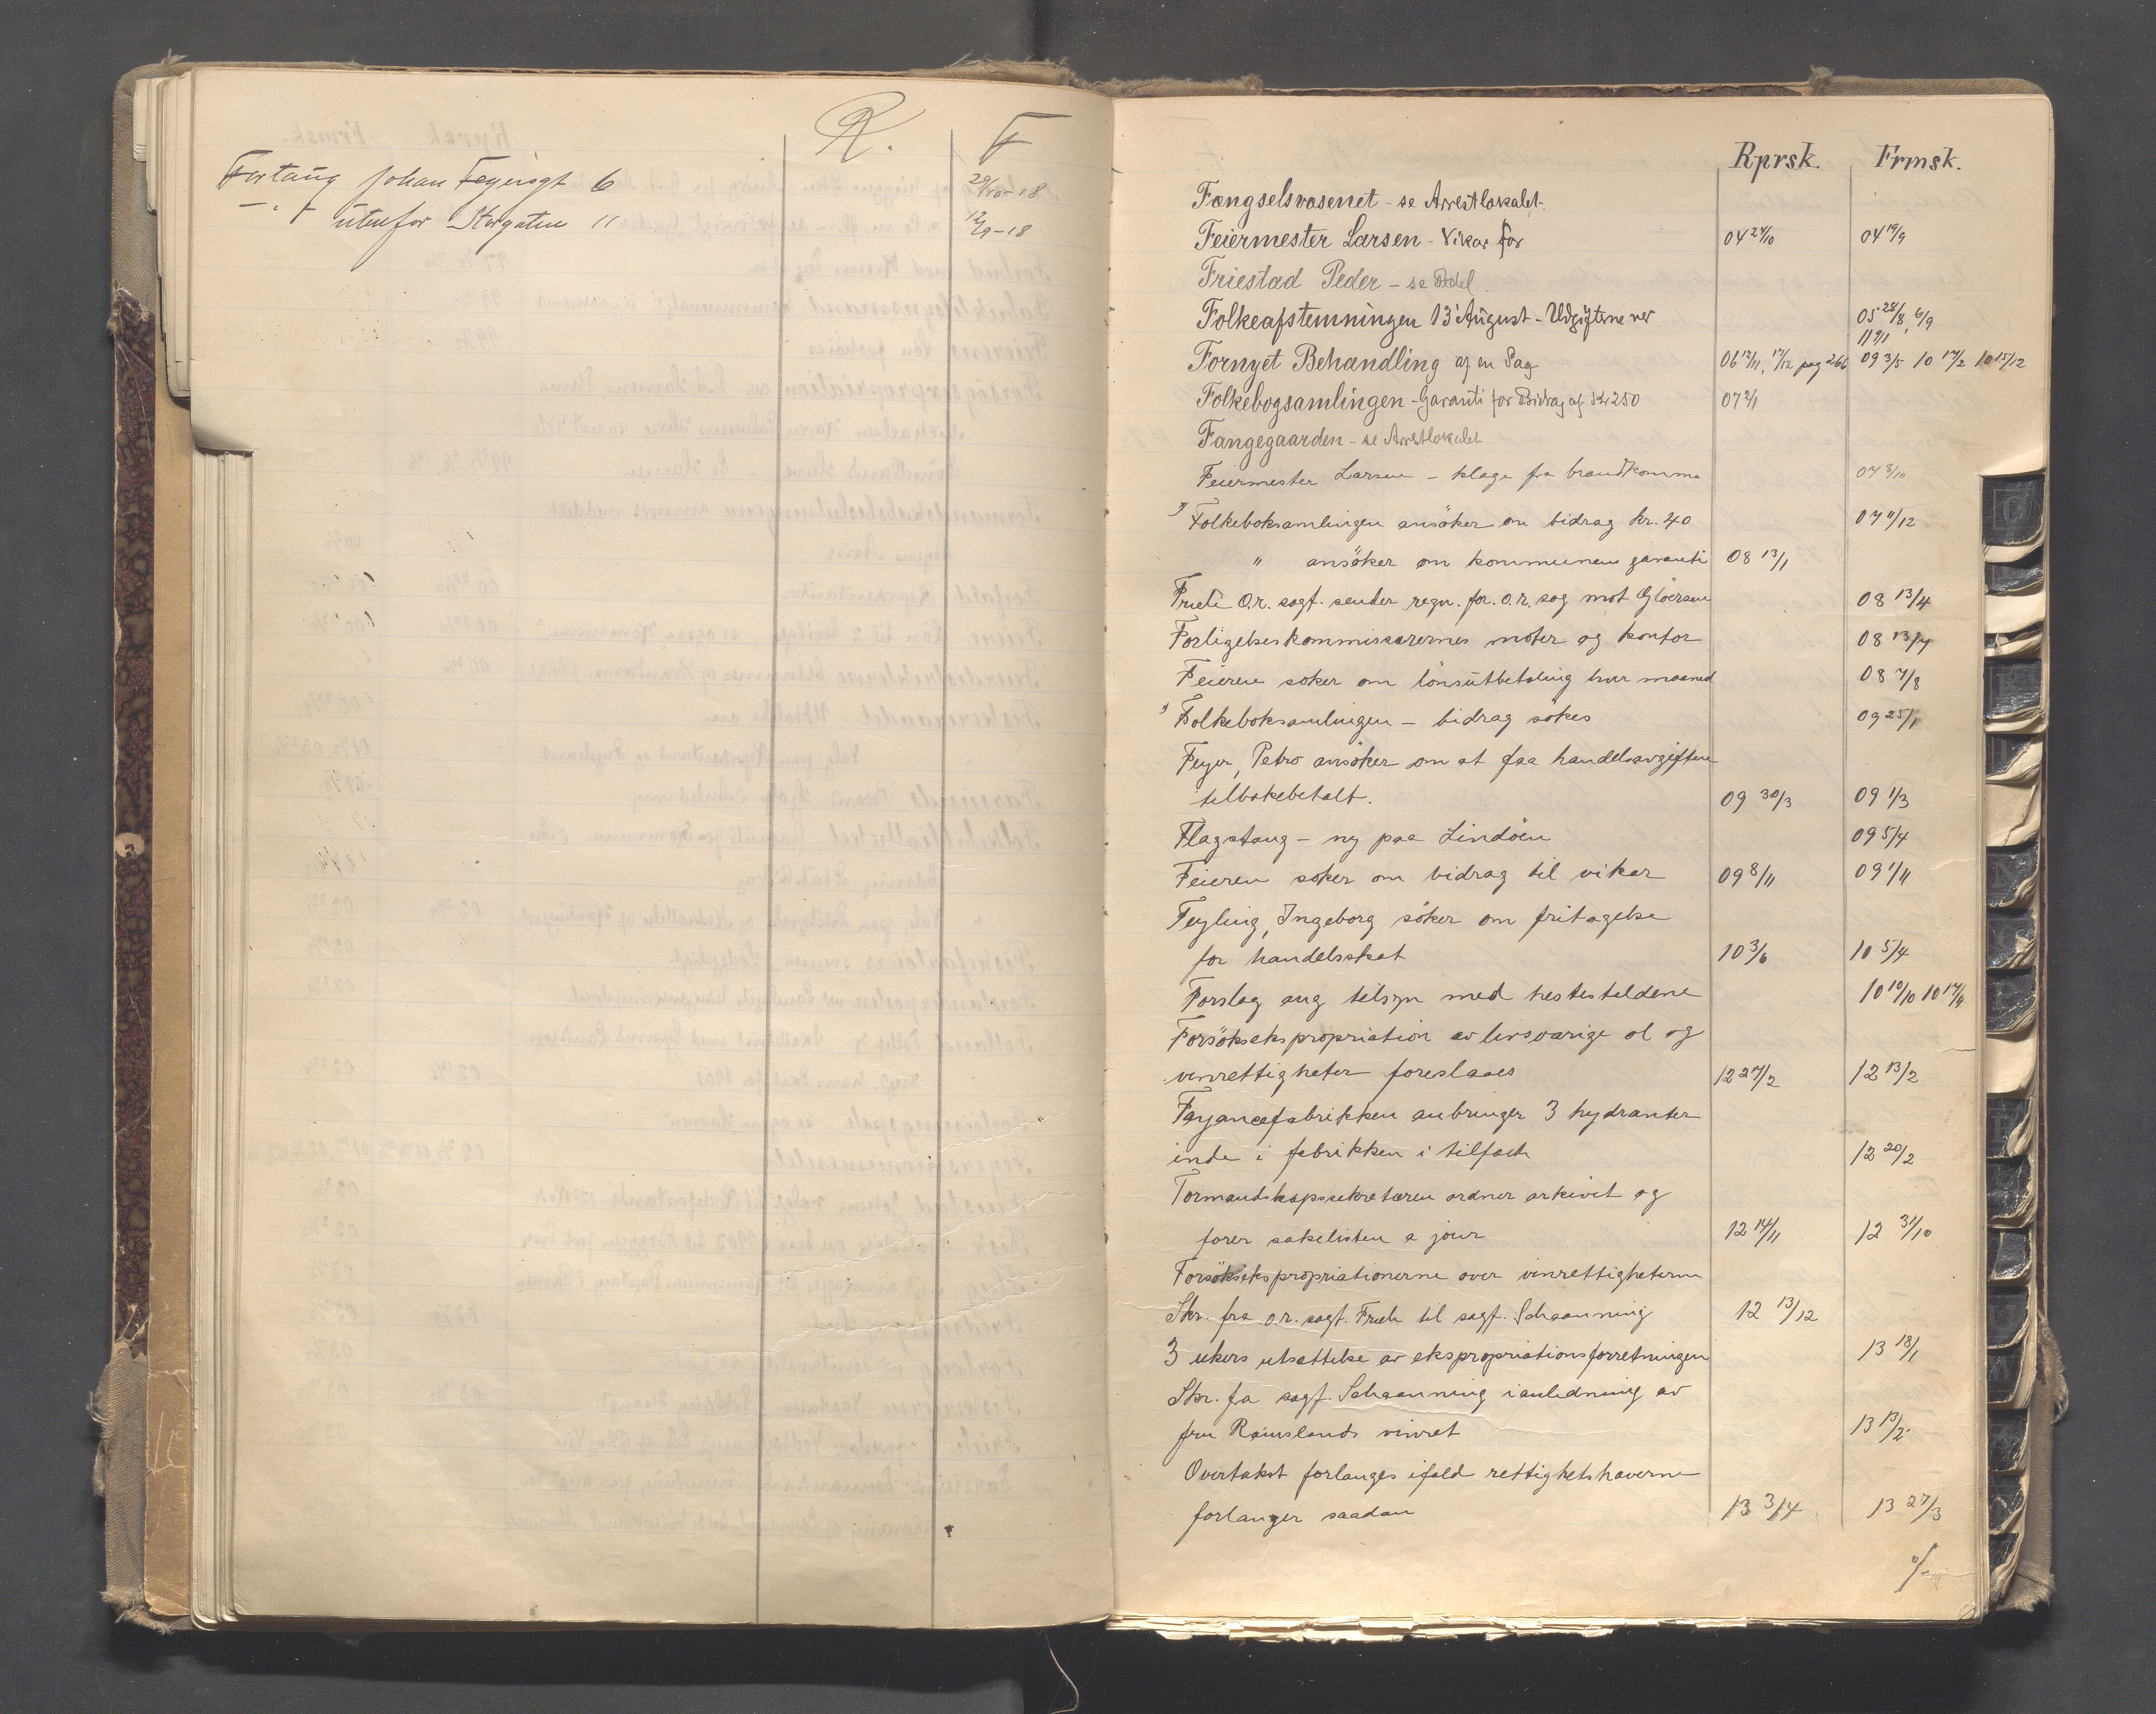 R. F
Fortaug Johan Feyersgt 6 29/10-18
-"- utenfor Storgaten 11 12/9-18
Rprsk. Frmsk.
Fængselsvæsenet - se Arrestlokalet.
Feiermester Larsen - Vikar for 04 24/10 04 19/9
Friestad Peder - se
Folkeafstemningen 13 August - Udgifterne ved 05 28/8, 6/9
11 9/1
Fornyet Behandling af en Sag 06 12/11, 17/12 pag 266 09 3/5 10 17/2 10 15/12
Folkebogsamlingen - Garanti for Bidrag af Kr 250 07 2/1
Fangegaarden - se Arrestlokalet
Feiermester Larsen - klage fra brandkomms 07 8/10
Folkeboksamlingen ansöker om bidrag kr. 40 07 11/12
" ansöker om kommunens garanti 08 13/1
O.r. sagf. sender regn. for o.r. sag mot Gjöersen 08 13/4
Forligelseskommissærernes møter og kontor 08 13/4
Feieren søker om lönsutbetaling hver maaned 08 7/8
Folkeboksamlingen - bidrag sökes 09 25/1
Feyer, Petro ansöker om at faa handelsavgiften
tilbakebetalt. 09 30/3 09 1/3
Flagstang - ny paa Lindöen 09 5/4
Feieren søker om bidrag til vikar 09 8/11 09 1/11
Feyling, Ingeborg söker om fritagelse
for handelsskat 10 3/6 10 5/4
Forslag ang tilsyn med hestestaldene 10 10/10 10 17/4
Forsöksekspropriation av livsvarige øl og
vinrettigheter foreslaaes 12 27/2 12 13/2
Fayancefabrikken anbringer 3 hydranter
inde i fabrikken i tilfælde 12 20/2
Formandskapssekretæren ordner arkivet og
fører sakelisten a jour 12 14/11 12 31/10
Forsöksekspropriationerne over vinrettigheterne
Skr. fra o.r. sagf. til sagf. Schaanning 12 13/12
3 ukers utsættelse av ekspropriationsforretningen 13 18/1
Skr. fra sagf. Schaanning i anledning av
fru Ramslands vinret 13 13/2
Overtakst forlanges ifald rettighetshaverne
forlanger saadan 13 3/4 13 27/3